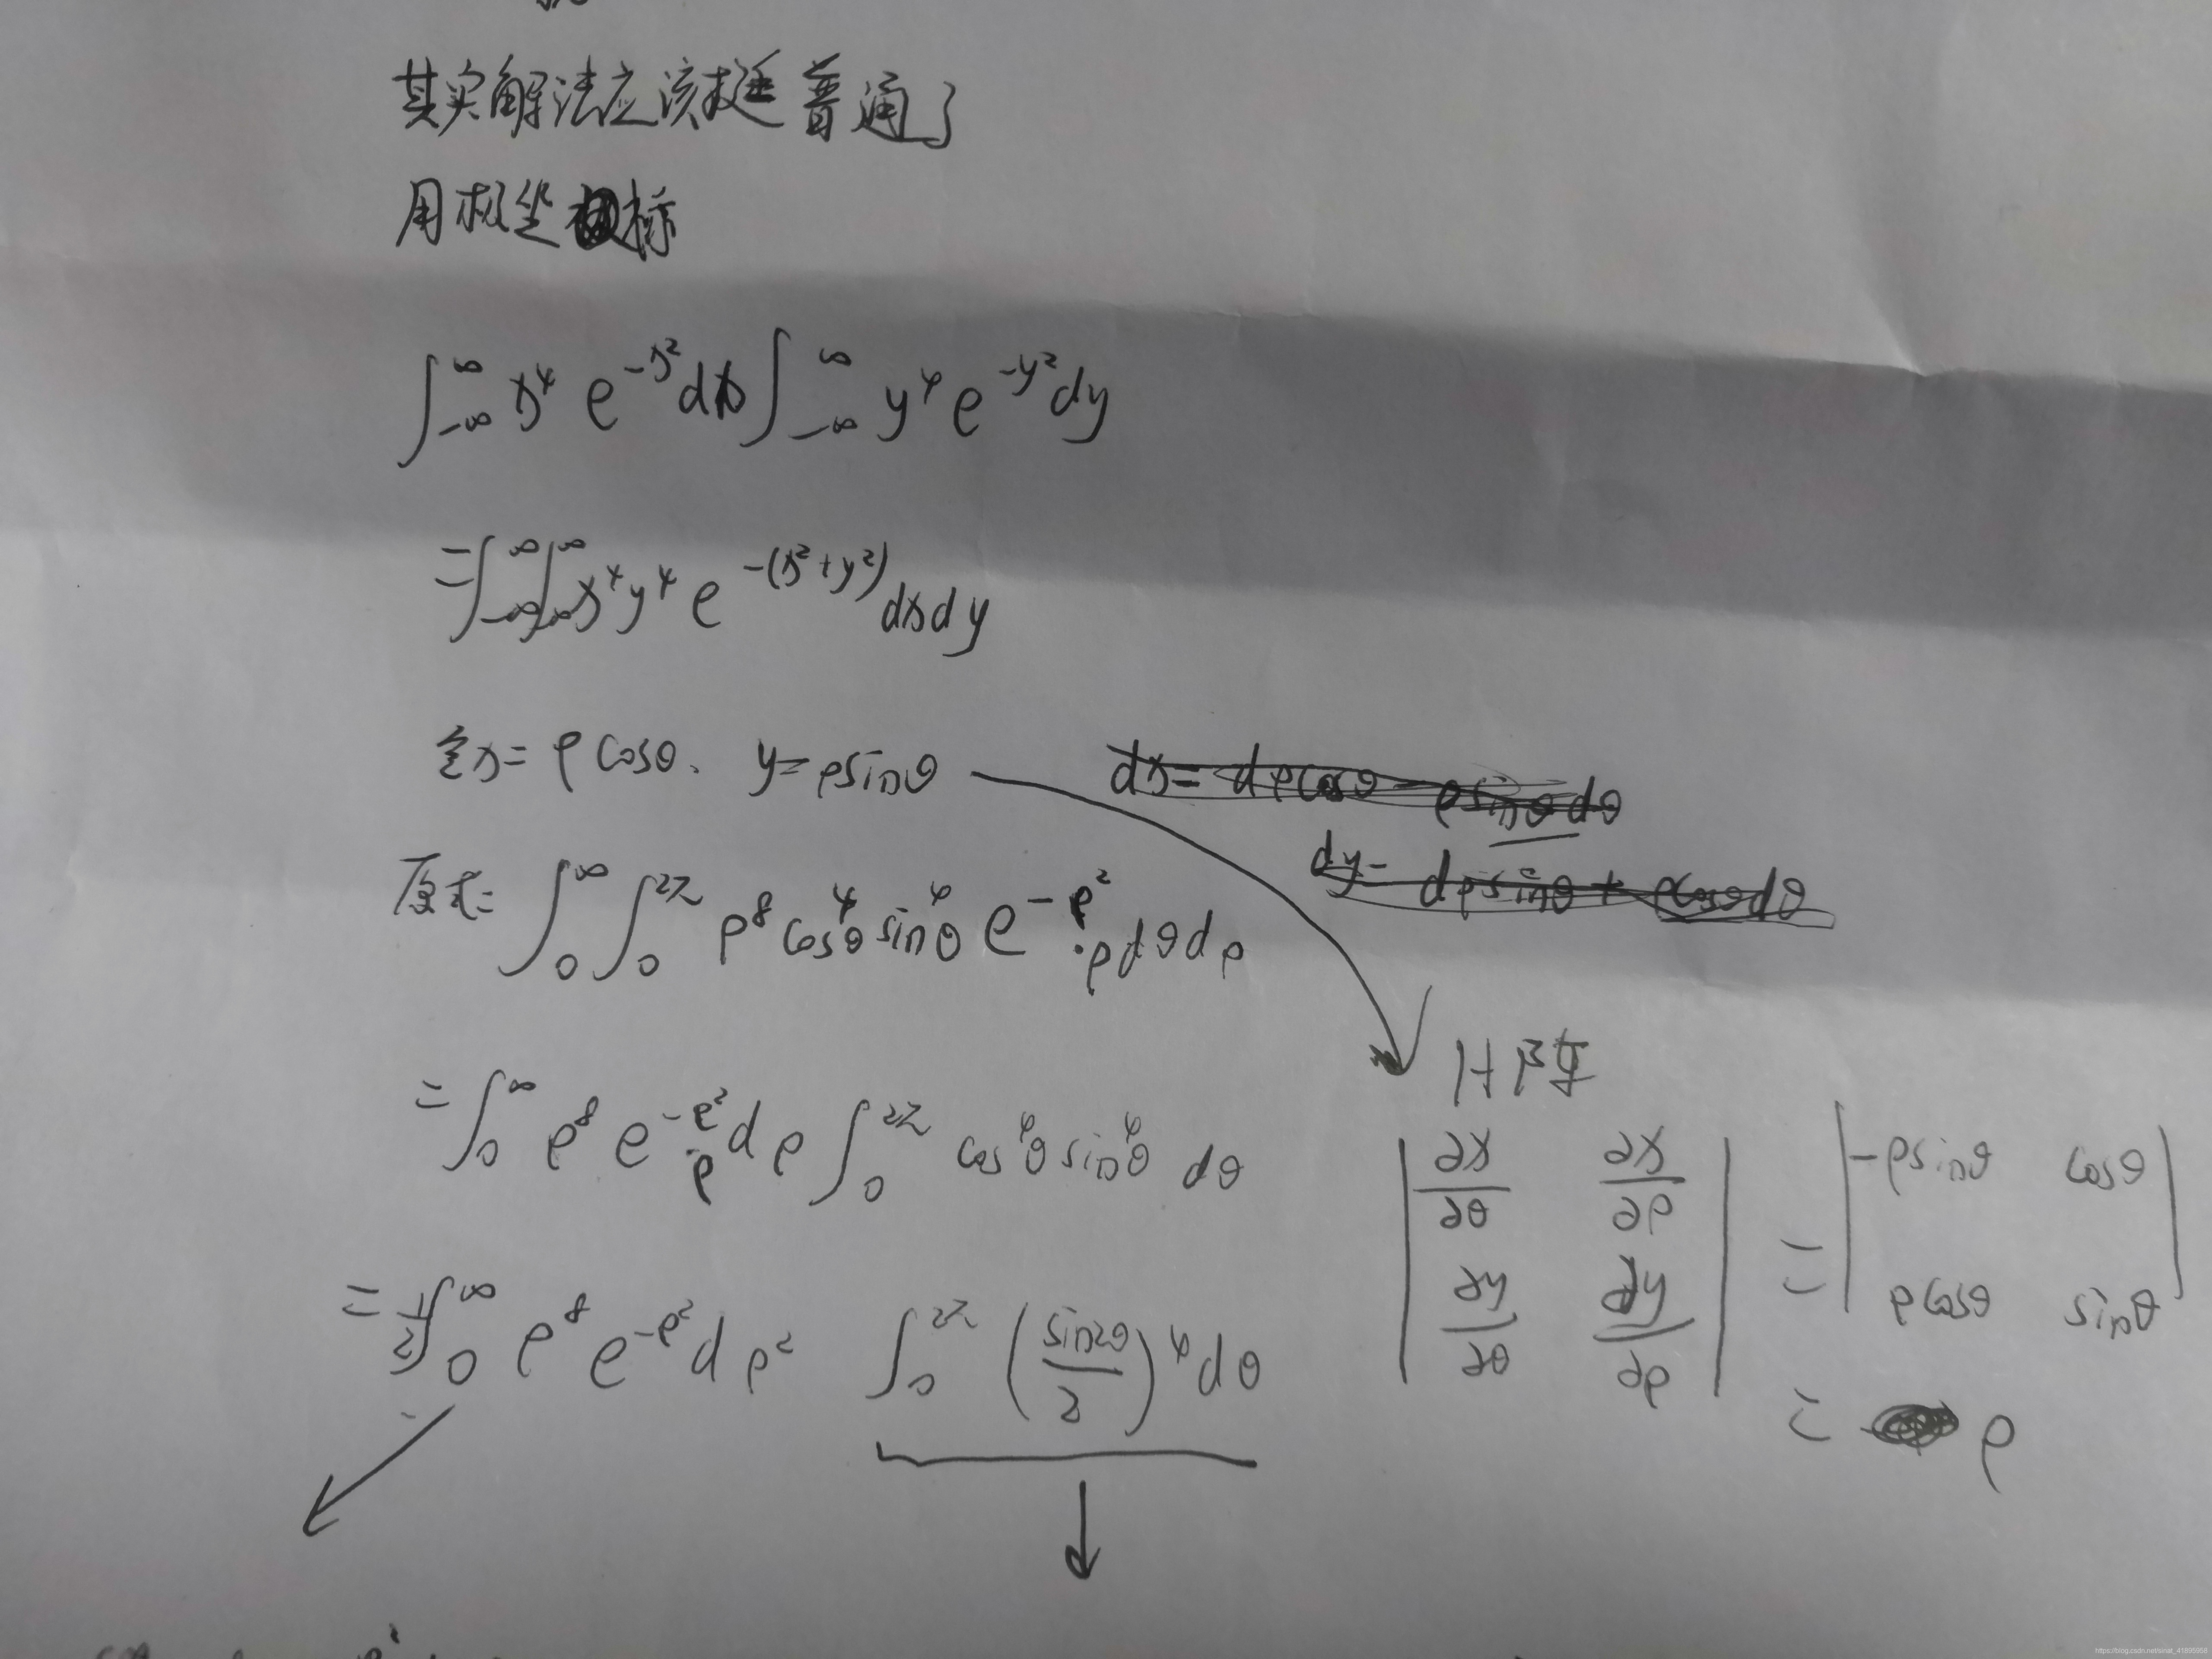 其实解法应该挺普通了
用极坐标
∫_{-∞}^{∞} x⁴ e^{-x²} dx ∫_{-∞}^{∞} y⁴ e^{-y²} dy
= ∫_{-∞}^{∞} ∫_{-∞}^{∞} x⁴ y⁴ e^{-(x²+y²)} dx dy
令 x = ρ cosθ、 y = ρ sinθ
dx = dρ cosθ - ρ sinθ dθ
dy = dρ sinθ + ρ cosθ dθ
原式 = ∫_0^∞ ∫_0^{2π} ρ⁸ cos⁴θ sin⁴θ e^{-ρ²} · ρ dθ dρ
= ∫_0^∞ ρ⁸ e^{-ρ²} · ρ dρ ∫_0^{2π} cos⁴θ sin⁴θ dθ
= 1/2 ∫_0^∞ ρ⁸ e^{-ρ²} dρ² ∫_0^{2π} (sin2θ/2)⁴ dθ
H阵
| ∂x/∂θ ∂x/∂ρ |
| ∂y/∂θ ∂y/∂ρ |
= | -ρ sinθ cosθ |
| ρ cosθ sinθ |
= ρ
https://blog.csdn.net/sinat_41895958